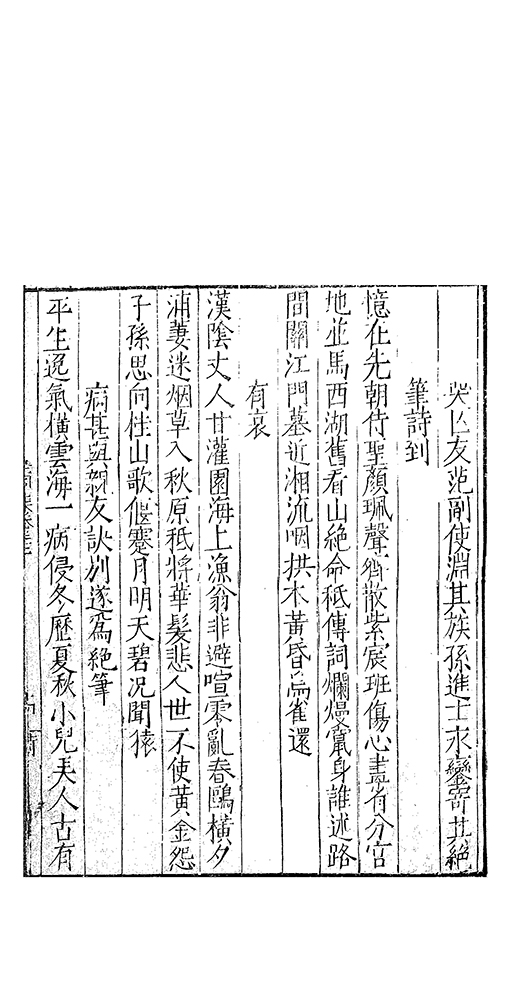 哭亡友范副使淵其族孫進士永鑾寄其絕
筆詩到
憶在先朝侍聖顏珮聲齊散紫宸班傷心晝省分官
地並馬西湖舊看山絕命秪傳詞爛熳竄身誰述路
間關江門墓近湘流咽拱木黃昏啼雀還
有哀
漢陰丈人甘灌園海上漁翁非避喧零亂春鷗橫夕
浦萋迷烟草入秋原秪將華髮悲人世不使黃金怨
子孫思向桂山歌偃蹇月明天碧況聞猿
病甚與親友訣別遂為絕筆
平生逸氣橫雲海一病侵冬歷夏秋小兒美人古有